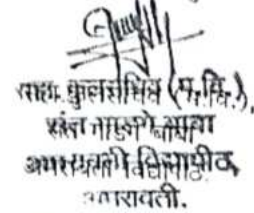 सहा. कुलसचिव (प.वि.),
संत गाडगे बाबा
अमरावती विद्यापीठ
अमरावती.